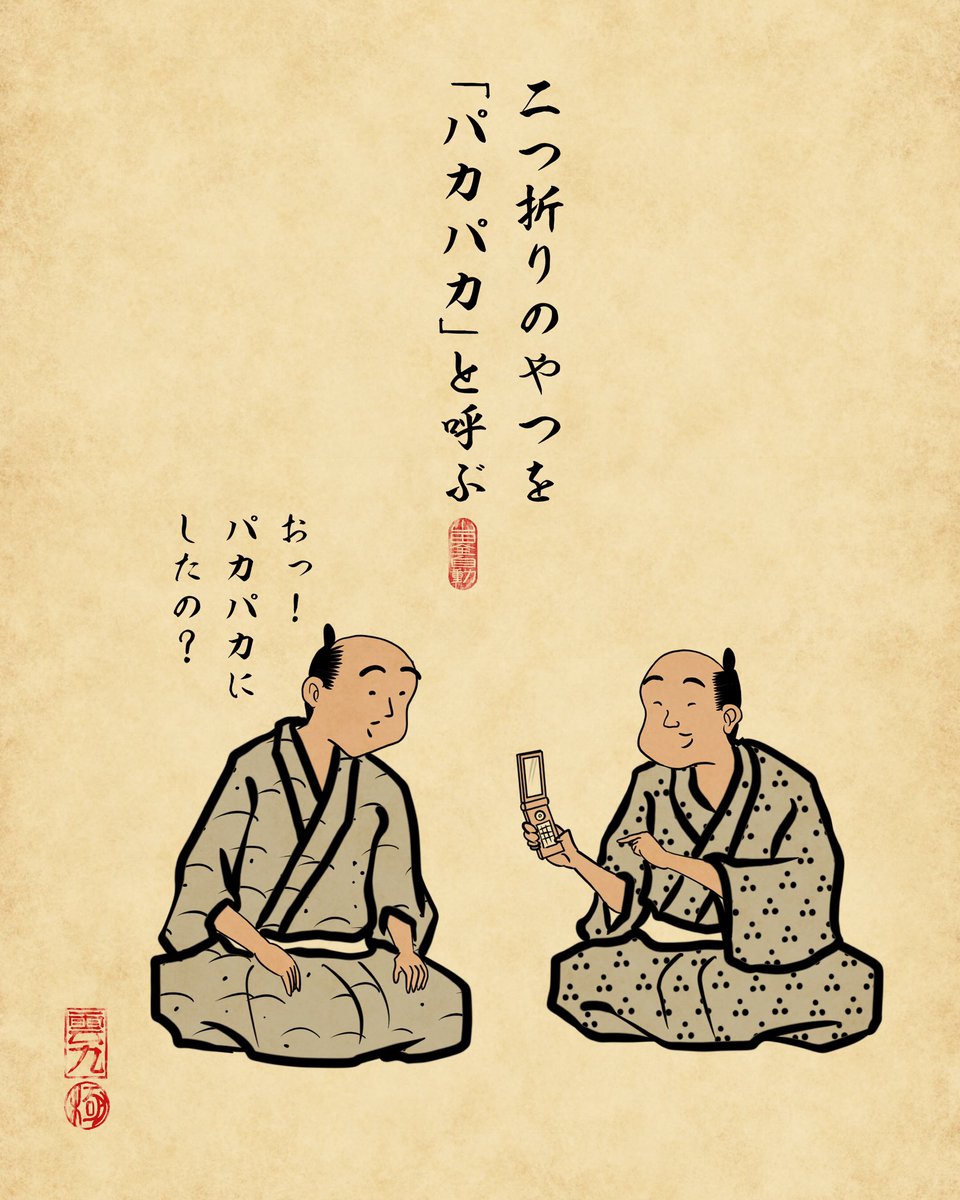 二つ折りのやつを
「パカパカ」と呼ぶ
おっ！
パカパカに
したの？
雲九
極